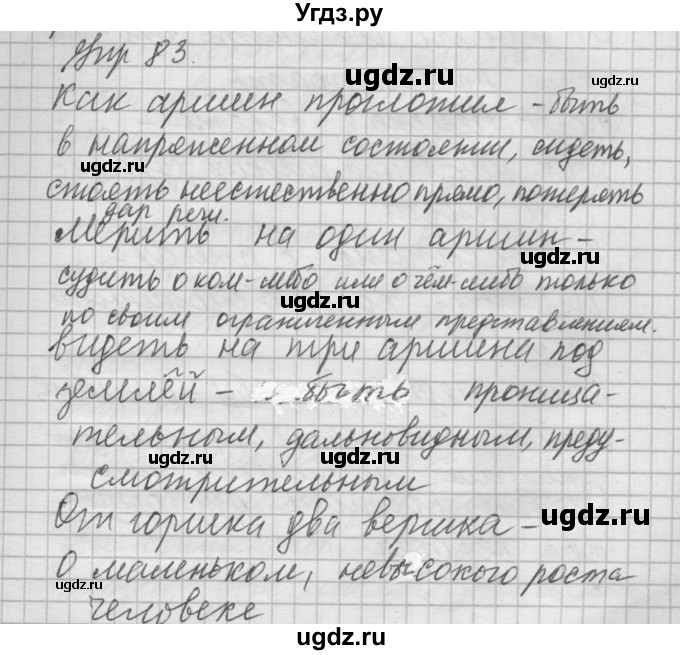 Угдз.ру
Упр 83.
Как аршин проглотил - быть
в напряженном состоянии, сидеть,
стоять неестественно прямо, потерять
дар речи.
Мерить на один аршин -
судить о ком-либо или о чём-либо только
по своим ограниченным представлениям.
видеть на три аршина под
землёй - быть проница-
тельным, дальновидным, преду-
смотрительным
От горшка два вершка -
О маленьком, невысокого роста
человеке
ugdz.ru
ugdz.ru
ugdz.ru
ugdz.ru
ugdz.ru
ugdz.ru
ugdz.ru
ugdz.ru
ugdz.ru
ugdz.ru
ugdz.ru
ugdz.ru